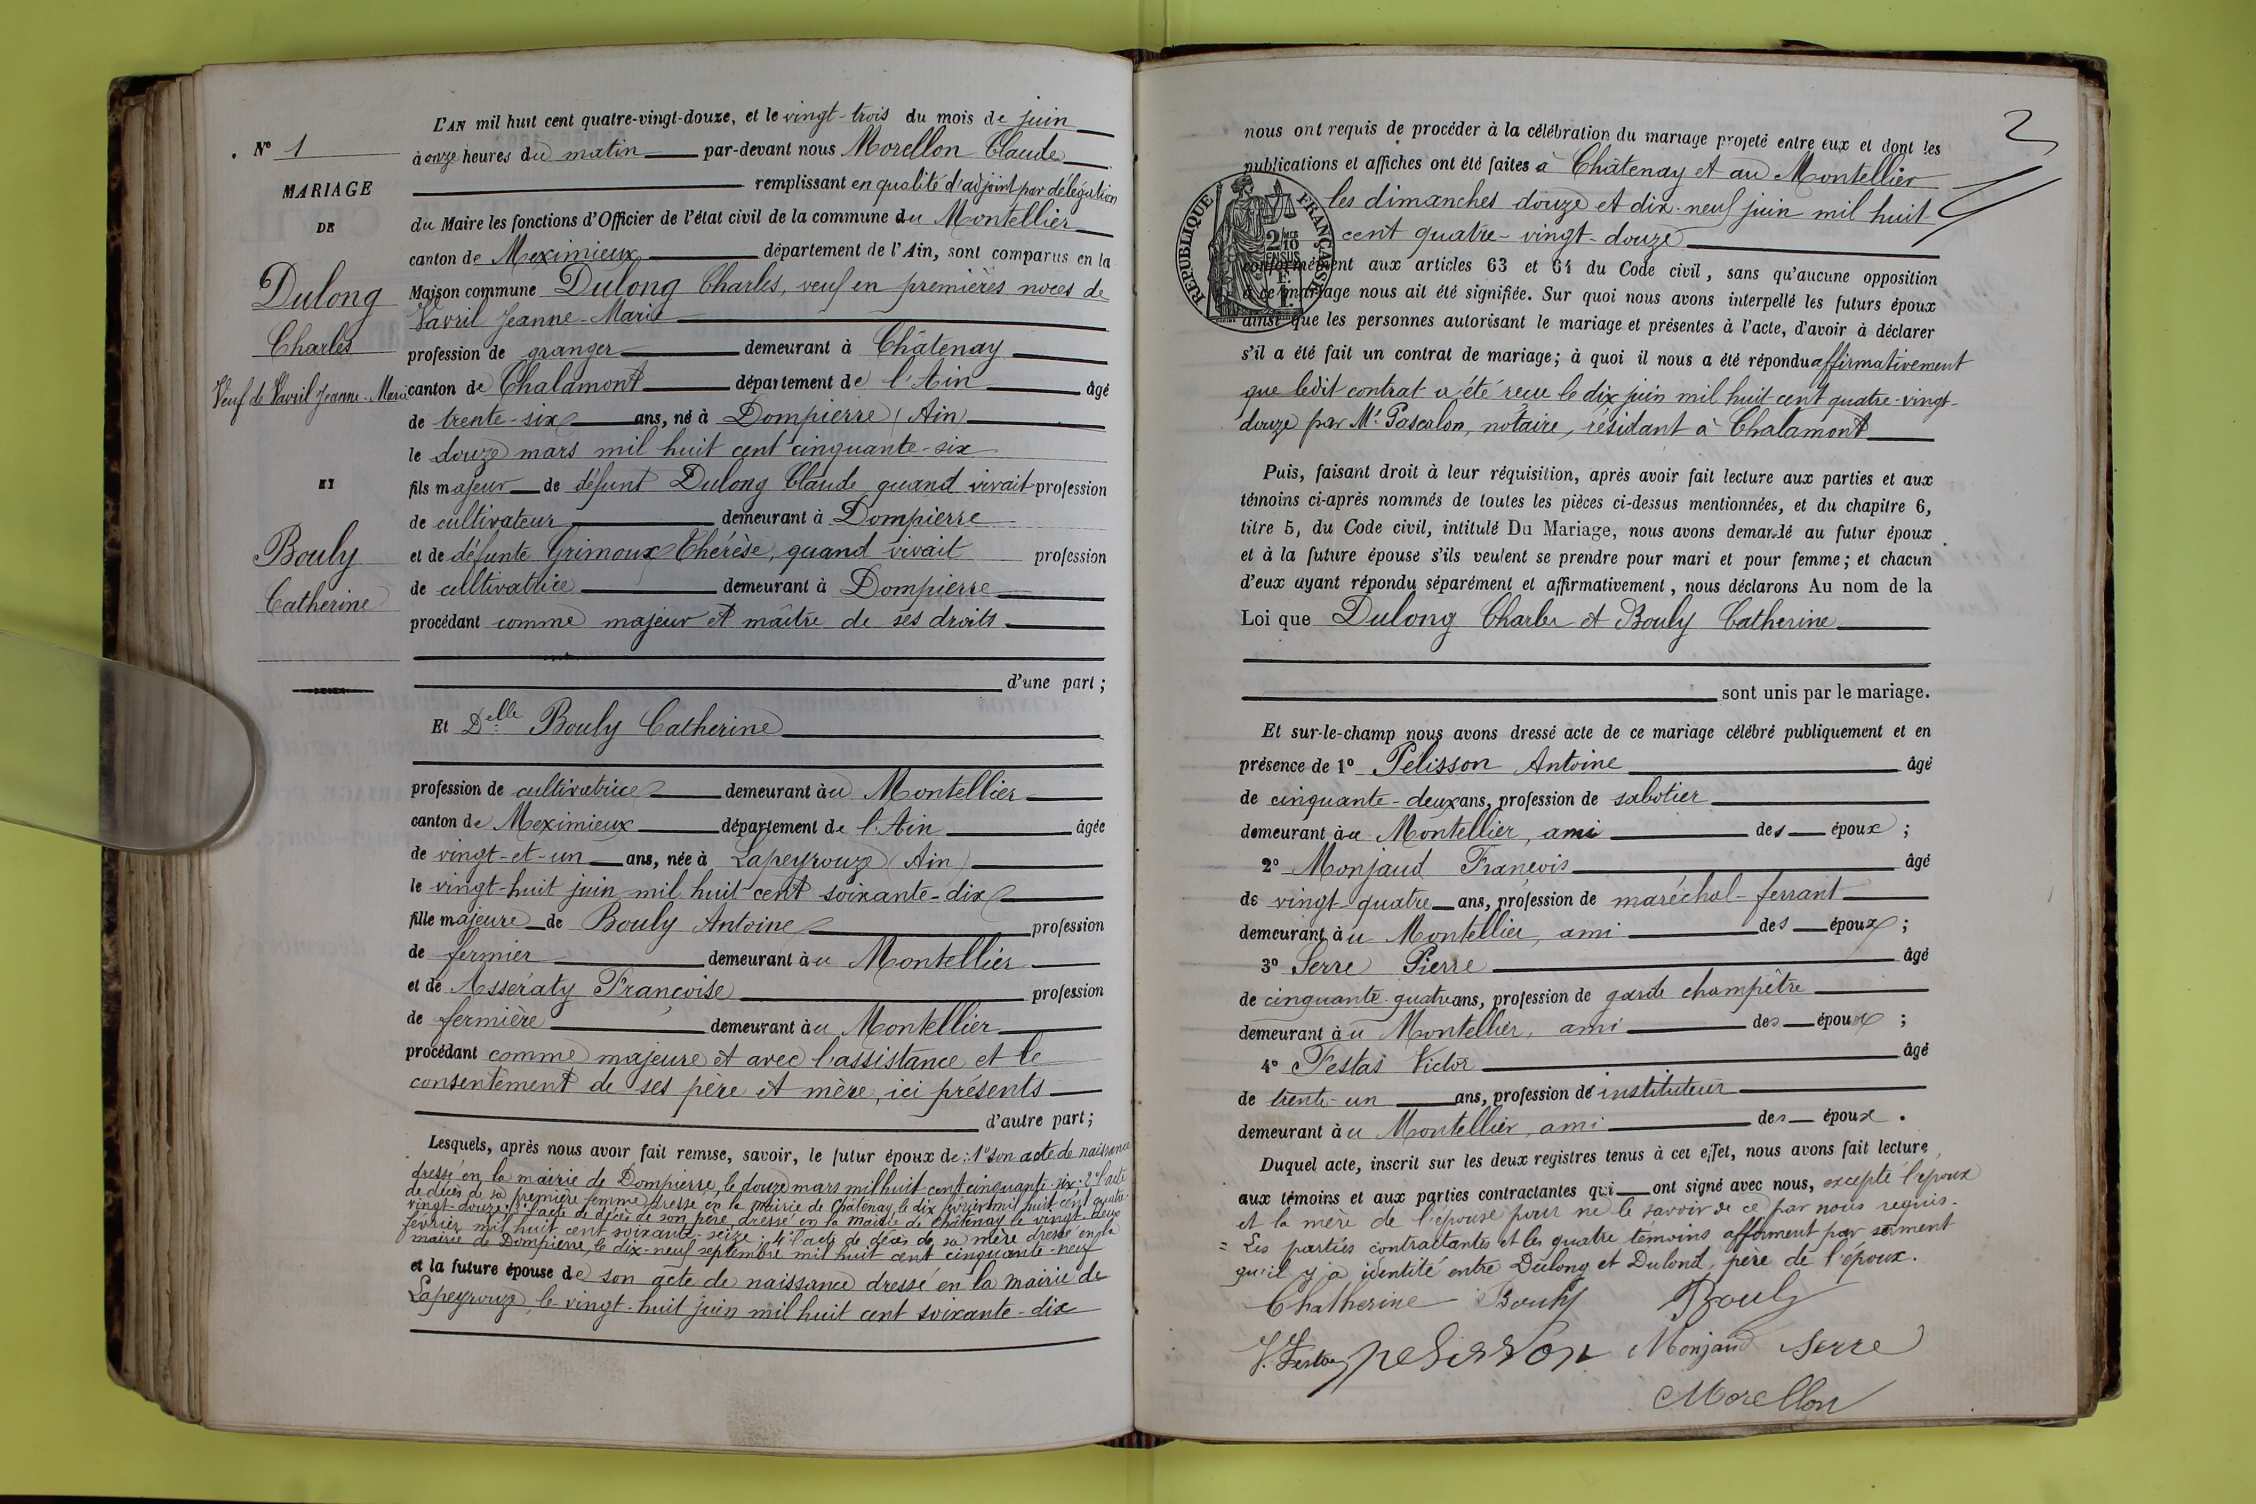 N° 1
MARIAGE
DE
Dulong
Charles
Veuf de Vavril Jeanne-Marie
ET
Bouly
Catherine
L'AN mil huit cent quatre-vingt-douze, et le vingt-trois du mois de juin
à onze heures du matin par-devant nous Morellon Claude
remplissant en qualité d'adjoint par délégation
du Maire les fonctions d'Officier de l'état civil de la commune du Montellier
canton de Meximieux département de l'Ain, sont comparus en la
Maison commune Dulong Charles, veuf en premières noces de
Vavril Jeanne-Marie
profession de granger demeurant à Châtenay
canton de Chalamont département de l'Ain âgé
de trente-six ans, né à Dompierre (Ain)
le douze mars mil huit cent cinquante-six
fils majeur de défunt Dulong Claude quand vivait profession
de cultivateur demeurant à Dompierre
et de défunte Grimoux Thérèse, quand vivait profession
de cultivatrice demeurant à Dompierre
procédant comme majeur et maître de ses droits
d'une part ;
Et Delle Bouly Catherine
profession de cultivatrice demeurant au Montellier
canton de Meximieux département de l'Ain âgée
de vingt-et-un ans, née à Lapeyrouze (Ain)
le vingt-huit juin mil huit cent soixante-dix
fille majeure de Bouly Antoine profession
de fermier demeurant au Montellier
et de Assératy Françoise profession
de fermière demeurant au Montellier
procédant comme majeure et avec l'assistance et le
consentement de ses père et mère, ici présents
d'autre part ;
Lesquels, après nous avoir fait remise, savoir, le futur époux de : 1° son acte de naissance
dressé en la mairie de Dompierre, le douze mars mil huit cent cinquante-six. 2° l'acte
de décès de sa première femme dressé en la mairie de Châtenay le dix février mil huit cent quatre-
vingt-douze. 3° l'acte de décès de son père dressé en la mairie de Châtenay le vingt-neuf
février mil huit cent soixante-seize. 4° l'acte de décès de sa mère dressé en la
mairie de Dompierre le dix-neuf septembre mil huit cent cinquante-neuf
et la future épouse de son acte de naissance dressé en la mairie de
Lapeyrouze, le vingt-huit juin mil huit cent soixante-dix
2
nous ont requis de procéder à la célébration du mariage projeté entre eux et dont les
publications et affiches ont été faites à Châtenay et au Montellier
les dimanches douze et dix-neuf juin mil huit
cent quatre-vingt-douze
RÉPUBLIQUE FRANÇAISE
conformément aux articles 63 et 64 du Code civil, sans qu'aucune opposition
à ce mariage nous ait été signifiée. Sur quoi nous avons interpellé les futurs époux
ainsi que les personnes autorisant le mariage et présentes à l'acte, d'avoir à déclarer
s'il a été fait un contrat de mariage; à quoi il nous a été répondu affirmativement
que ledit contrat a été reçu le dix juin mil huit cent quatre-vingt-
douze par Me Pascalon, notaire, résidant à Chalamont
Puis, faisant droit à leur réquisition, après avoir fait lecture aux parties et aux
témoins ci-après nommés de toutes les pièces ci-dessus mentionnées, et du chapitre 6,
titre 5, du Code civil, intitulé Du Mariage, nous avons demandé au futur époux
et à la future épouse s'ils veulent se prendre pour mari et pour femme; et chacun
d'eux ayant répondu séparément et affirmativement, nous déclarons Au nom de la
Loi que Dulong Charles et Bouly Catherine
sont unis par le mariage.
Et sur-le-champ nous avons dressé acte de ce mariage célébré publiquement et en
présence de 1° Pélisson Antoine âgé
de cinquante-deux ans, profession de sabotier
demeurant au Montellier, ami des époux ;
2° Monjaud François âgé
de vingt-quatre ans, profession de maréchal-ferrant
demeurant au Montellier, ami des époux ;
3° Serre Pierre âgé
de cinquante-quatre ans, profession de garde champêtre
demeurant au Montellier, ami des époux ;
4° Festas Victor âgé
de trente-un ans, profession de instituteur
demeurant au Montellier, ami des époux .
Duquel acte, inscrit sur les deux registres tenus à cet effet, nous avons fait lecture
aux témoins et aux parties contractantes qui ont signé avec nous, excepté l'époux
et la mère de l'épouse pour ne le savoir de ce par nous requis.
= Les parties contractantes et les quatre témoins affirment par serment
qu'il y a identité entre Dulong et Dulond, père de l'époux.
Chatherine Bouly Bouly
V. Festas pelisson Monjaud Serre
Morellon